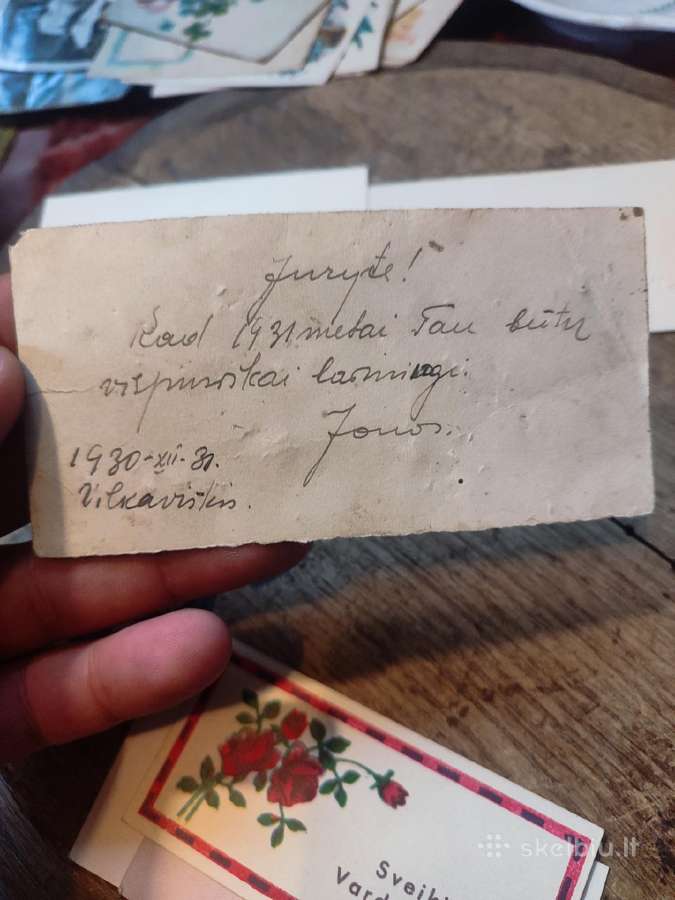 Juryte!
Kad 1931 metai Tau būtų
visapusiškai laimingi.
Jonas.
1930-XII-31.
Vilkaviškis.
Sveiki
Vard
skelbiu.lt